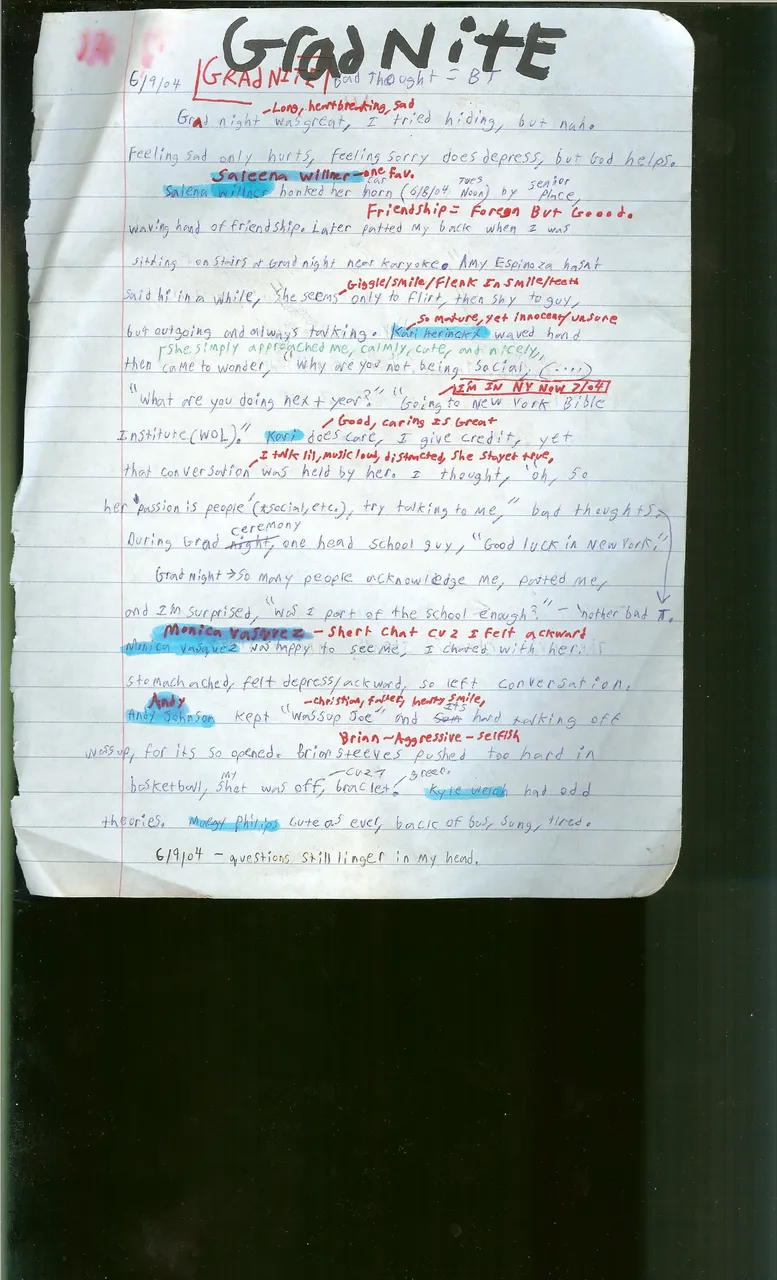 Grad NitE
6/9/04 GRAD NITE Bad thought = BT
- Long, heartbreaking, sad
Grad night was great, I tried hiding, but nah.
Feeling sad only hurts, feeling sorry does depress, but God helps.
Saleena Willner - one fav.
car Tues senior
Salena Willner honked her horn (6/8/04 Noon) by place,
Friendship = Foregn But Goood.
waving hand of friendship. Later patted my back when I was
sitting on stairs at Grad night near karyoke. Amy Espinoza hasnt
Giggle/smile/Flenk In smile/teeth
said hi in a while, she seems only to flirt, then shy to guy,
so mature, yet innocent/unsure
but outgoing and always talking. Kari Herinckx waved hand
she simply approached me, calmly, cute, and nicely,
then came to wonder, "Why are you not being social, (....)
I'm IN NY Now 7/04
"What are you doing next year?" "Going to New York Bible
Good, caring Is Great
Institute (WOL)." Kari does care, I give credit, yet
I talk lil, music loud, distracted, she stayet true,
that conversation was held by her. I thought, "oh, so
her 'passion is people' (+social, etc.), try talking to me," bad thoughts.
ceremony
During Grad night, one head school guy, "Good luck in New York."
Grad night → So many people acknowledge me, patted me,
and I'm surprised, "was I part of the school enough?" - 'nother bad T.
Monica Vasquez - short chat cuz I felt ackward
Monica Vasquez was happy to see me, I chated with her.
stomach ached, felt depress/ackward, so left conversation.
Andy - christian, faster, hearty smile,
Its
Andy Johnson kept "wassup Joe" and hard talking off
Brian - Aggressive - selfish
wassup, for its so opened. Brian steeves pushed too hard in
my - cuz
basketball, shot was off, braclet. Kyle Welch had odd
theories. Maegy Philips cute as ever, back of bus, sung, tired.
6/9/04 - questions still linger in my head.